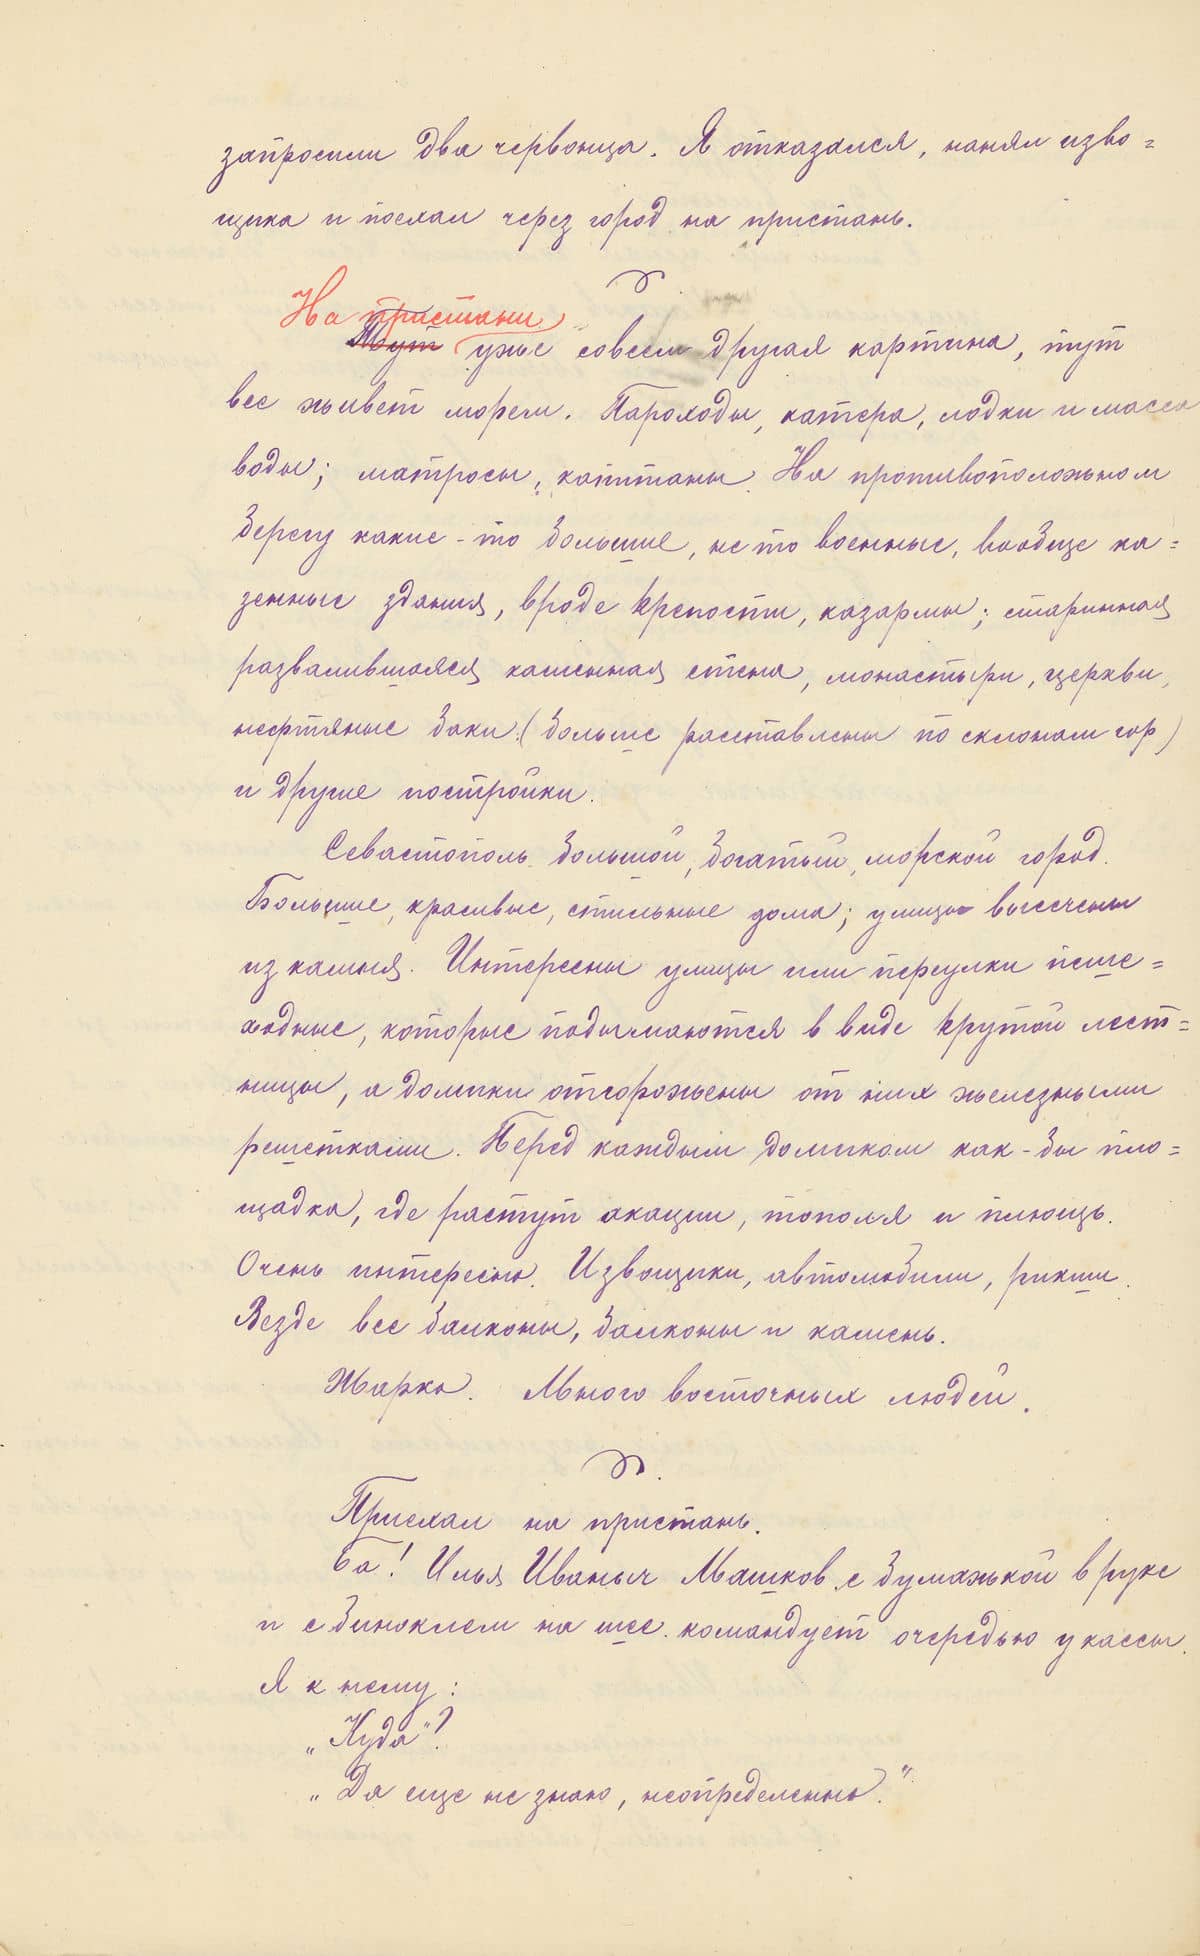 запросили два червонца. Я отказался, нанял изво=
щика и поехал через город на пристань.
На пристани
Тут уже совсем другая картина, тут
все живет морем. Пароходы, катера, лодки и масса
воды; матросы, капитаны. На противоположном
берегу какие-то большие, не то военные, вообще ка=
зенные здания, вроде крепости, казармы; старинная
развалившаяся каменная стена, монастыри, церкви,
нефтяные баки (больше расставлены по склонам гор)
и другие постройки.
Севастополь большой, богатый, морской город.
Большие, красивые, стильные дома; улицы высечены
из камня. Интересны улицы или переулки пеше=
ходные, которые подымаются в виде крутой лест=
ницы, а домики отгорожены от них железными
решетками. Перед каждым домиком как-бы пло=
щадка, где растут акации, тополя и плющь.
Очень интересно. Извощики, автомобили, рикши.
Везде все балконы, балконы и камень.
Жарко. Много восточных людей.
Приехал на пристань.
Ба! Илья Иваныч Машков с бумажкой в руке
и с биноклем на шее командует очередью у кассы.
Я к нему:
„Куда"?
„Да еще не знаю, неопределенно."